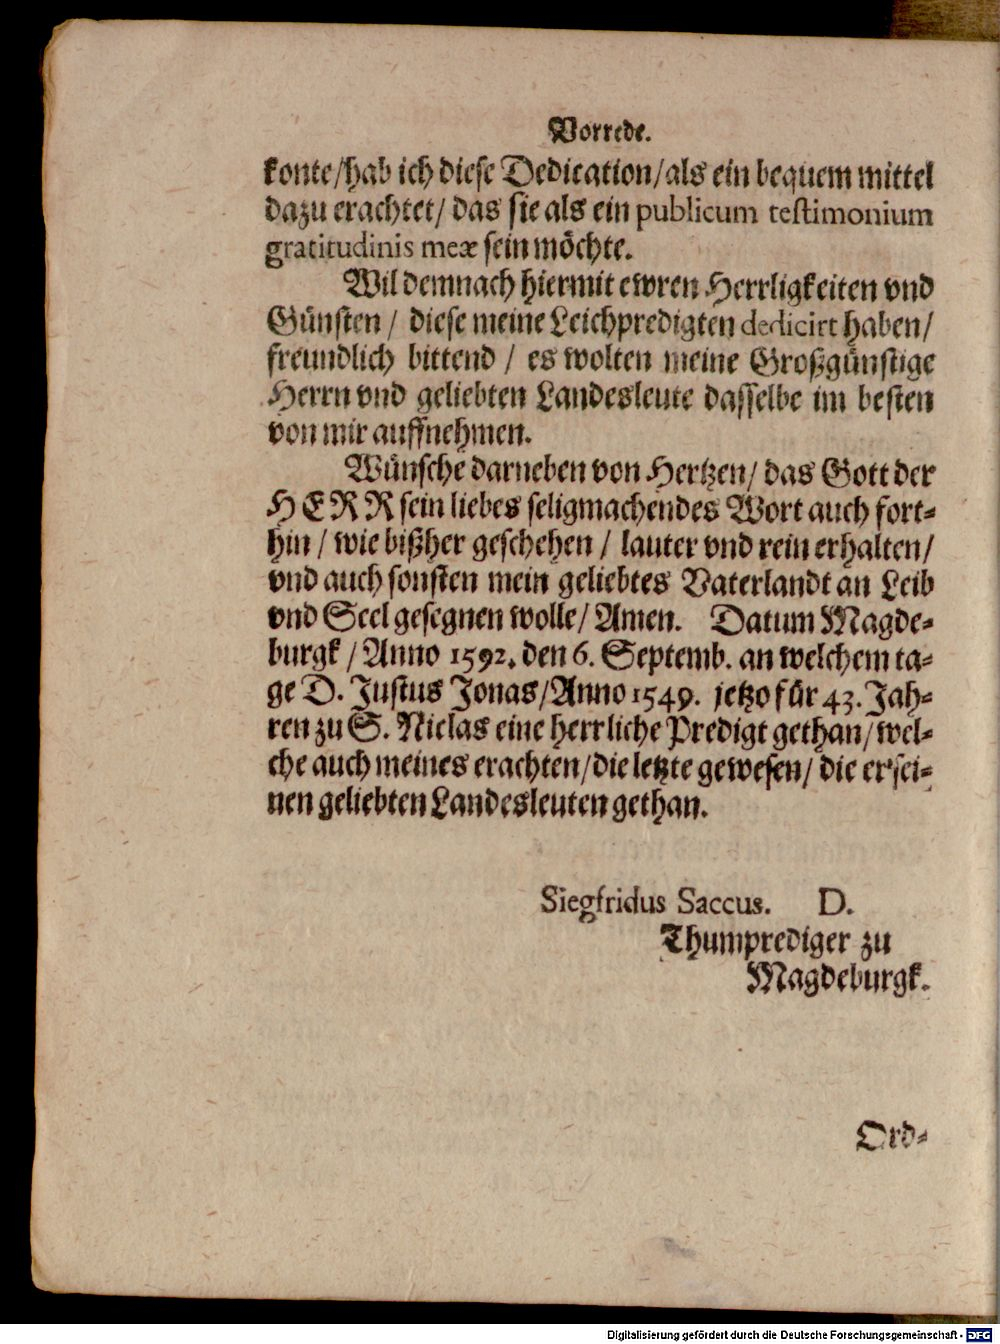 Vorrede.
konte/hab ich diese Dedication/als ein bequem mittel
dazu erachtet/ das sie als ein publicum testimonium
gratitudinis meæ sein möchte.
Wil demnach hiermit ewren Herrligkeiten vnd
Günsten / diese meine Leichpredigten dedicirt haben/
freundlich bittend / es wolten meine Großgünstige
Herrn vnd geliebten Landesleute dasselbe im besten
von mir auffnehmen.
Wünsche darneben von Hertzen/ das Gott der
HERR sein liebes seligmachendes Wort auch fort-
hin / wie bißher geschehen / lauter vnd rein erhalten/
vnd auch sonsten mein geliebtes Vaterlandt an Leib
vnd Seel gesegnen wolle/ Amen. Datum Magde-
burgk / Anno 1592. den 6. Septemb. an welchem ta-
ge D. Justus Jonas/Anno 1549. jetzo für 43. Jah-
ren zu S. Niclas eine herrliche Predigt gethan/wel-
che auch meines erachten/die letzte gewesen/ die er sei-
nen geliebten Landesleuten gethan.
Siegfridus Saccus. D.
Thumprediger zu
Magdeburgk.
Ord-
Digitalisierung gefördert durch die Deutsche Forschungsgemeinschaft - DFG